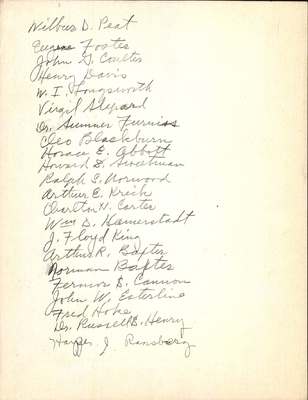 Wilbur D. Peat
Eugene Foster
John G. Coulter
Henry Davis
W. I. Longsworth
Virgil Shepard
Dr. Sumner Furniss
Cleo Blackburn
Horace E. Abbott
Howard S.
Ralph S. Norwood
Arthur E. Krick
Charlton N. Carter
Wm D. Hamerstadt
J. Floyd King
Arthur R. Baxter
Norman Baxter
Fermor S. Cannon
John W. Esterline
Fred Hoke
Dr. Russell B. Henry
Harper J. Ransburg